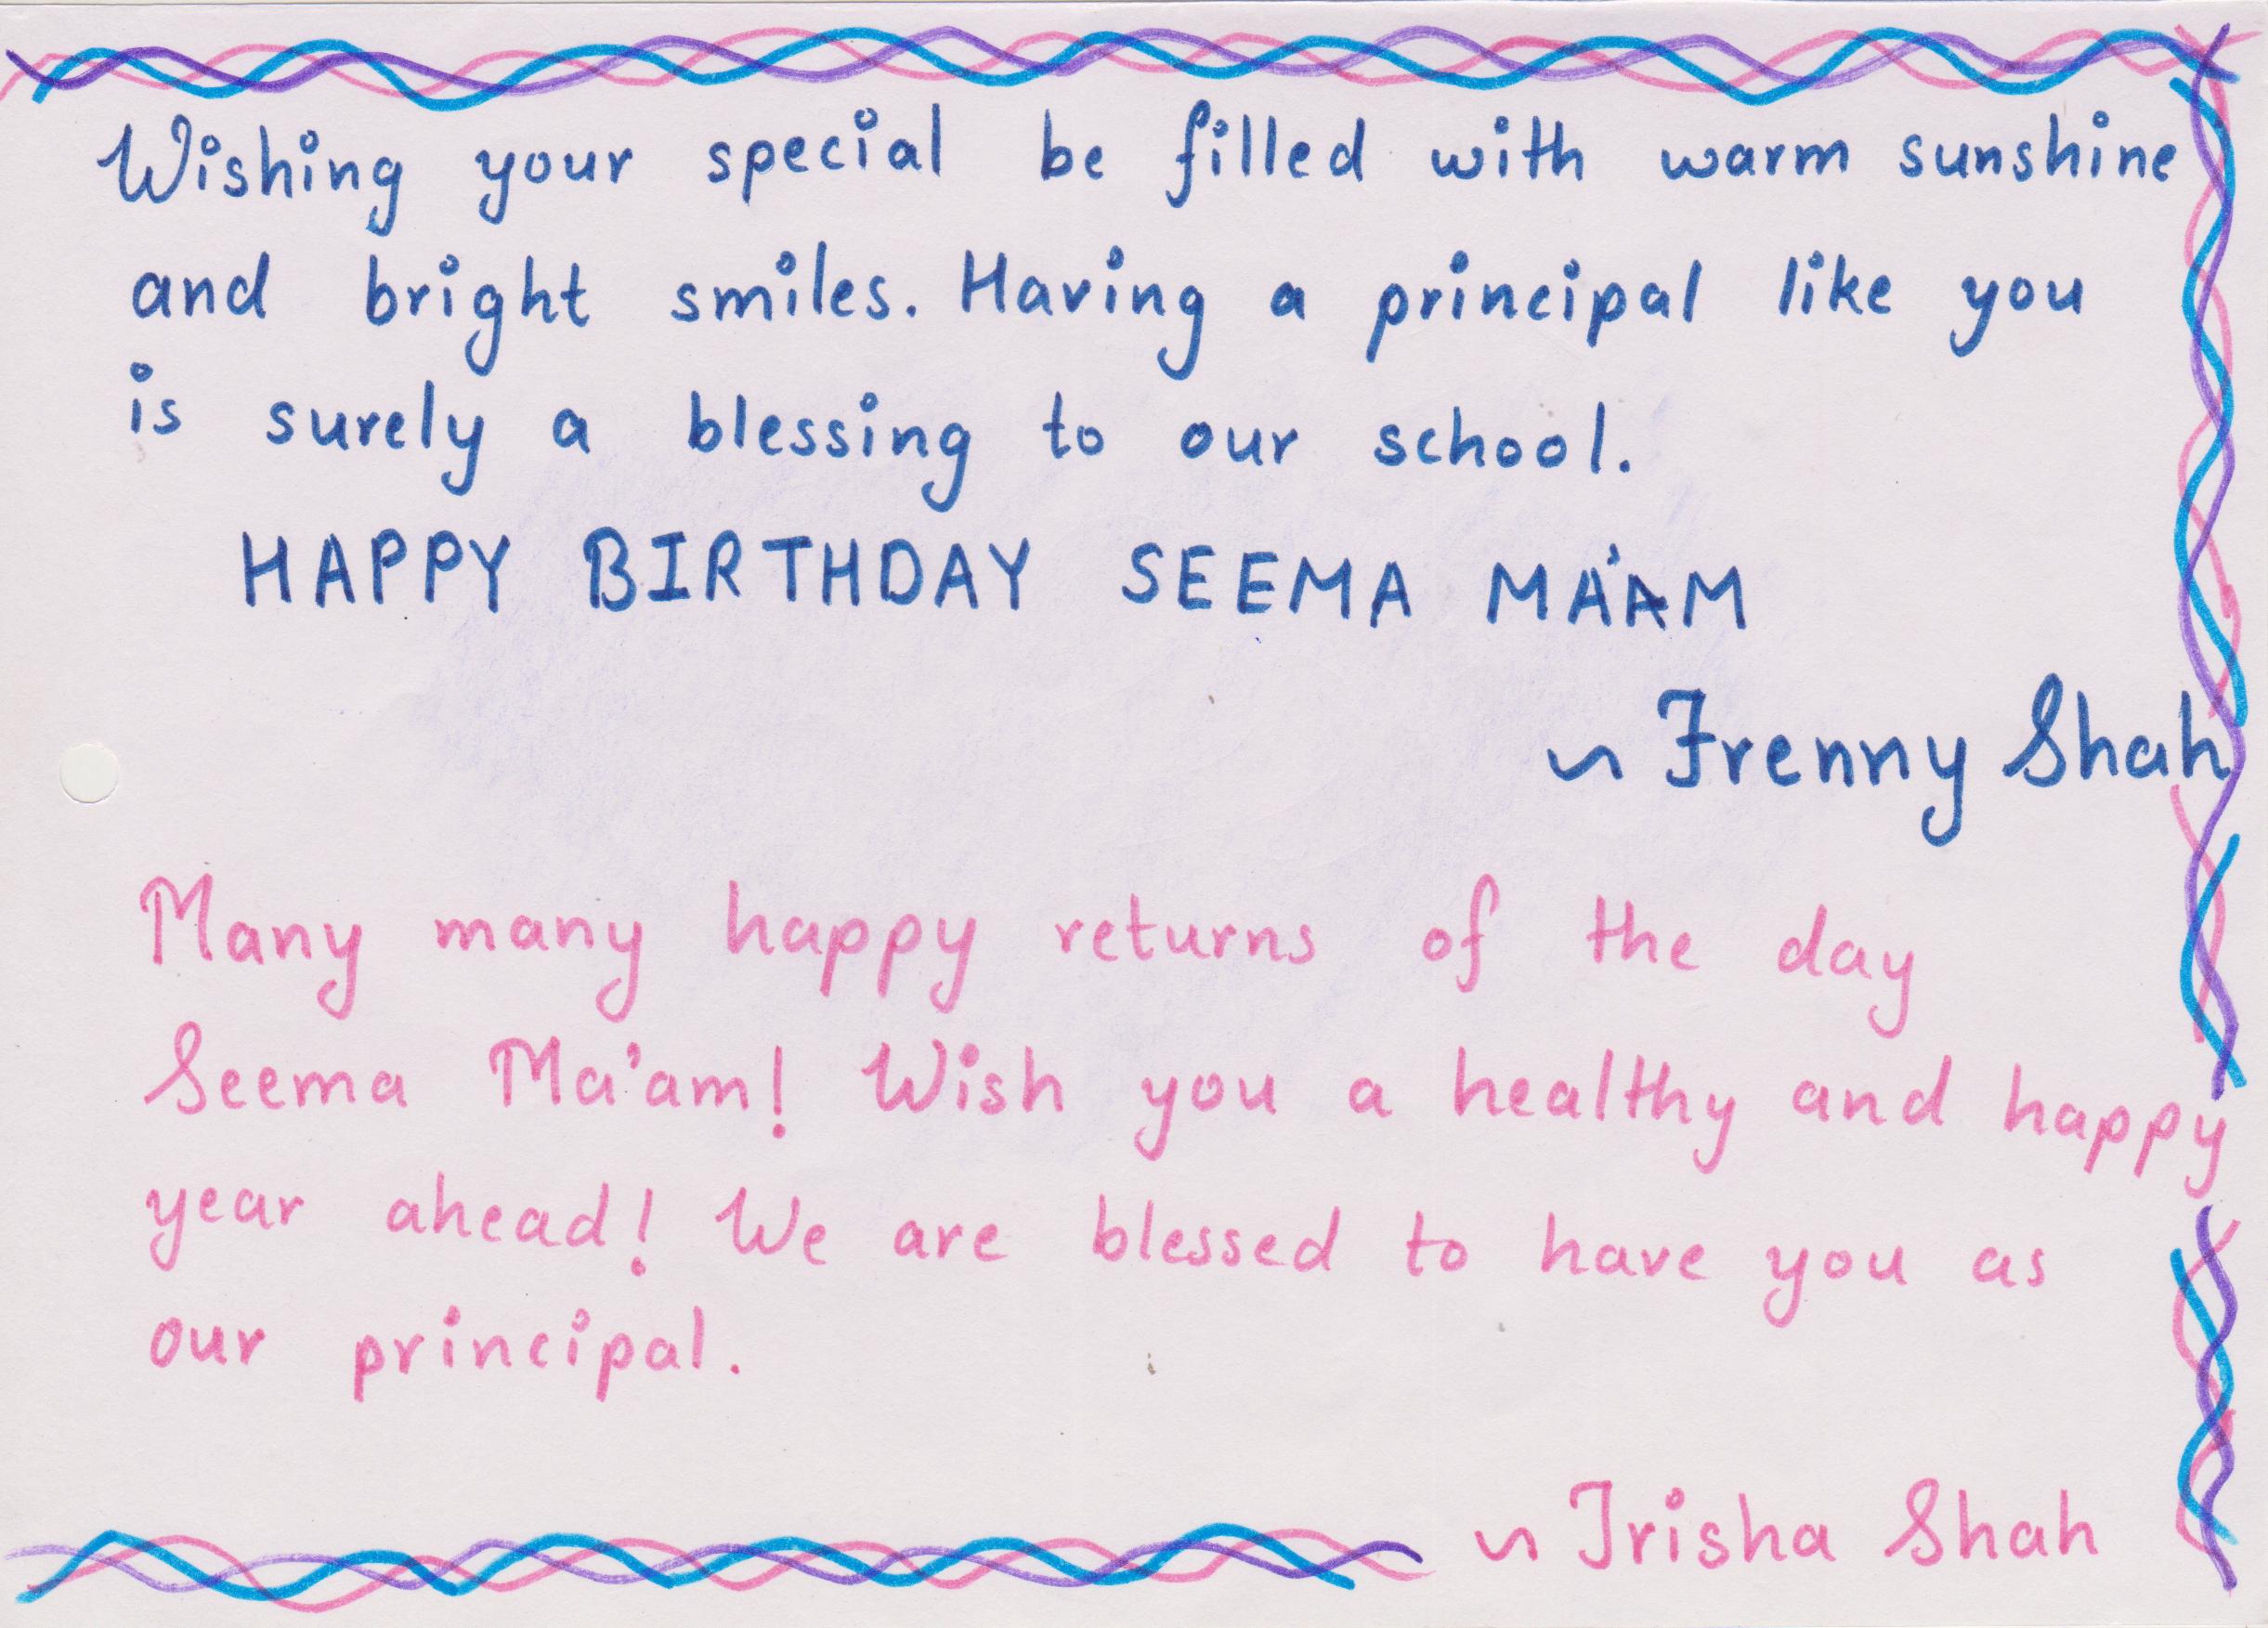 Wishing your special be filled with warm sunshine
and bright smiles. Having a principal like you
is surely a blessing to our school.
HAPPY BIRTHDAY SEEMA MA'AM
~ Frenny Shah
Many many happy returns of the day
Seema Ma'am! Wish you a healthy and happy
year ahead! We are blessed to have you as
our principal.
~ Trisha Shah